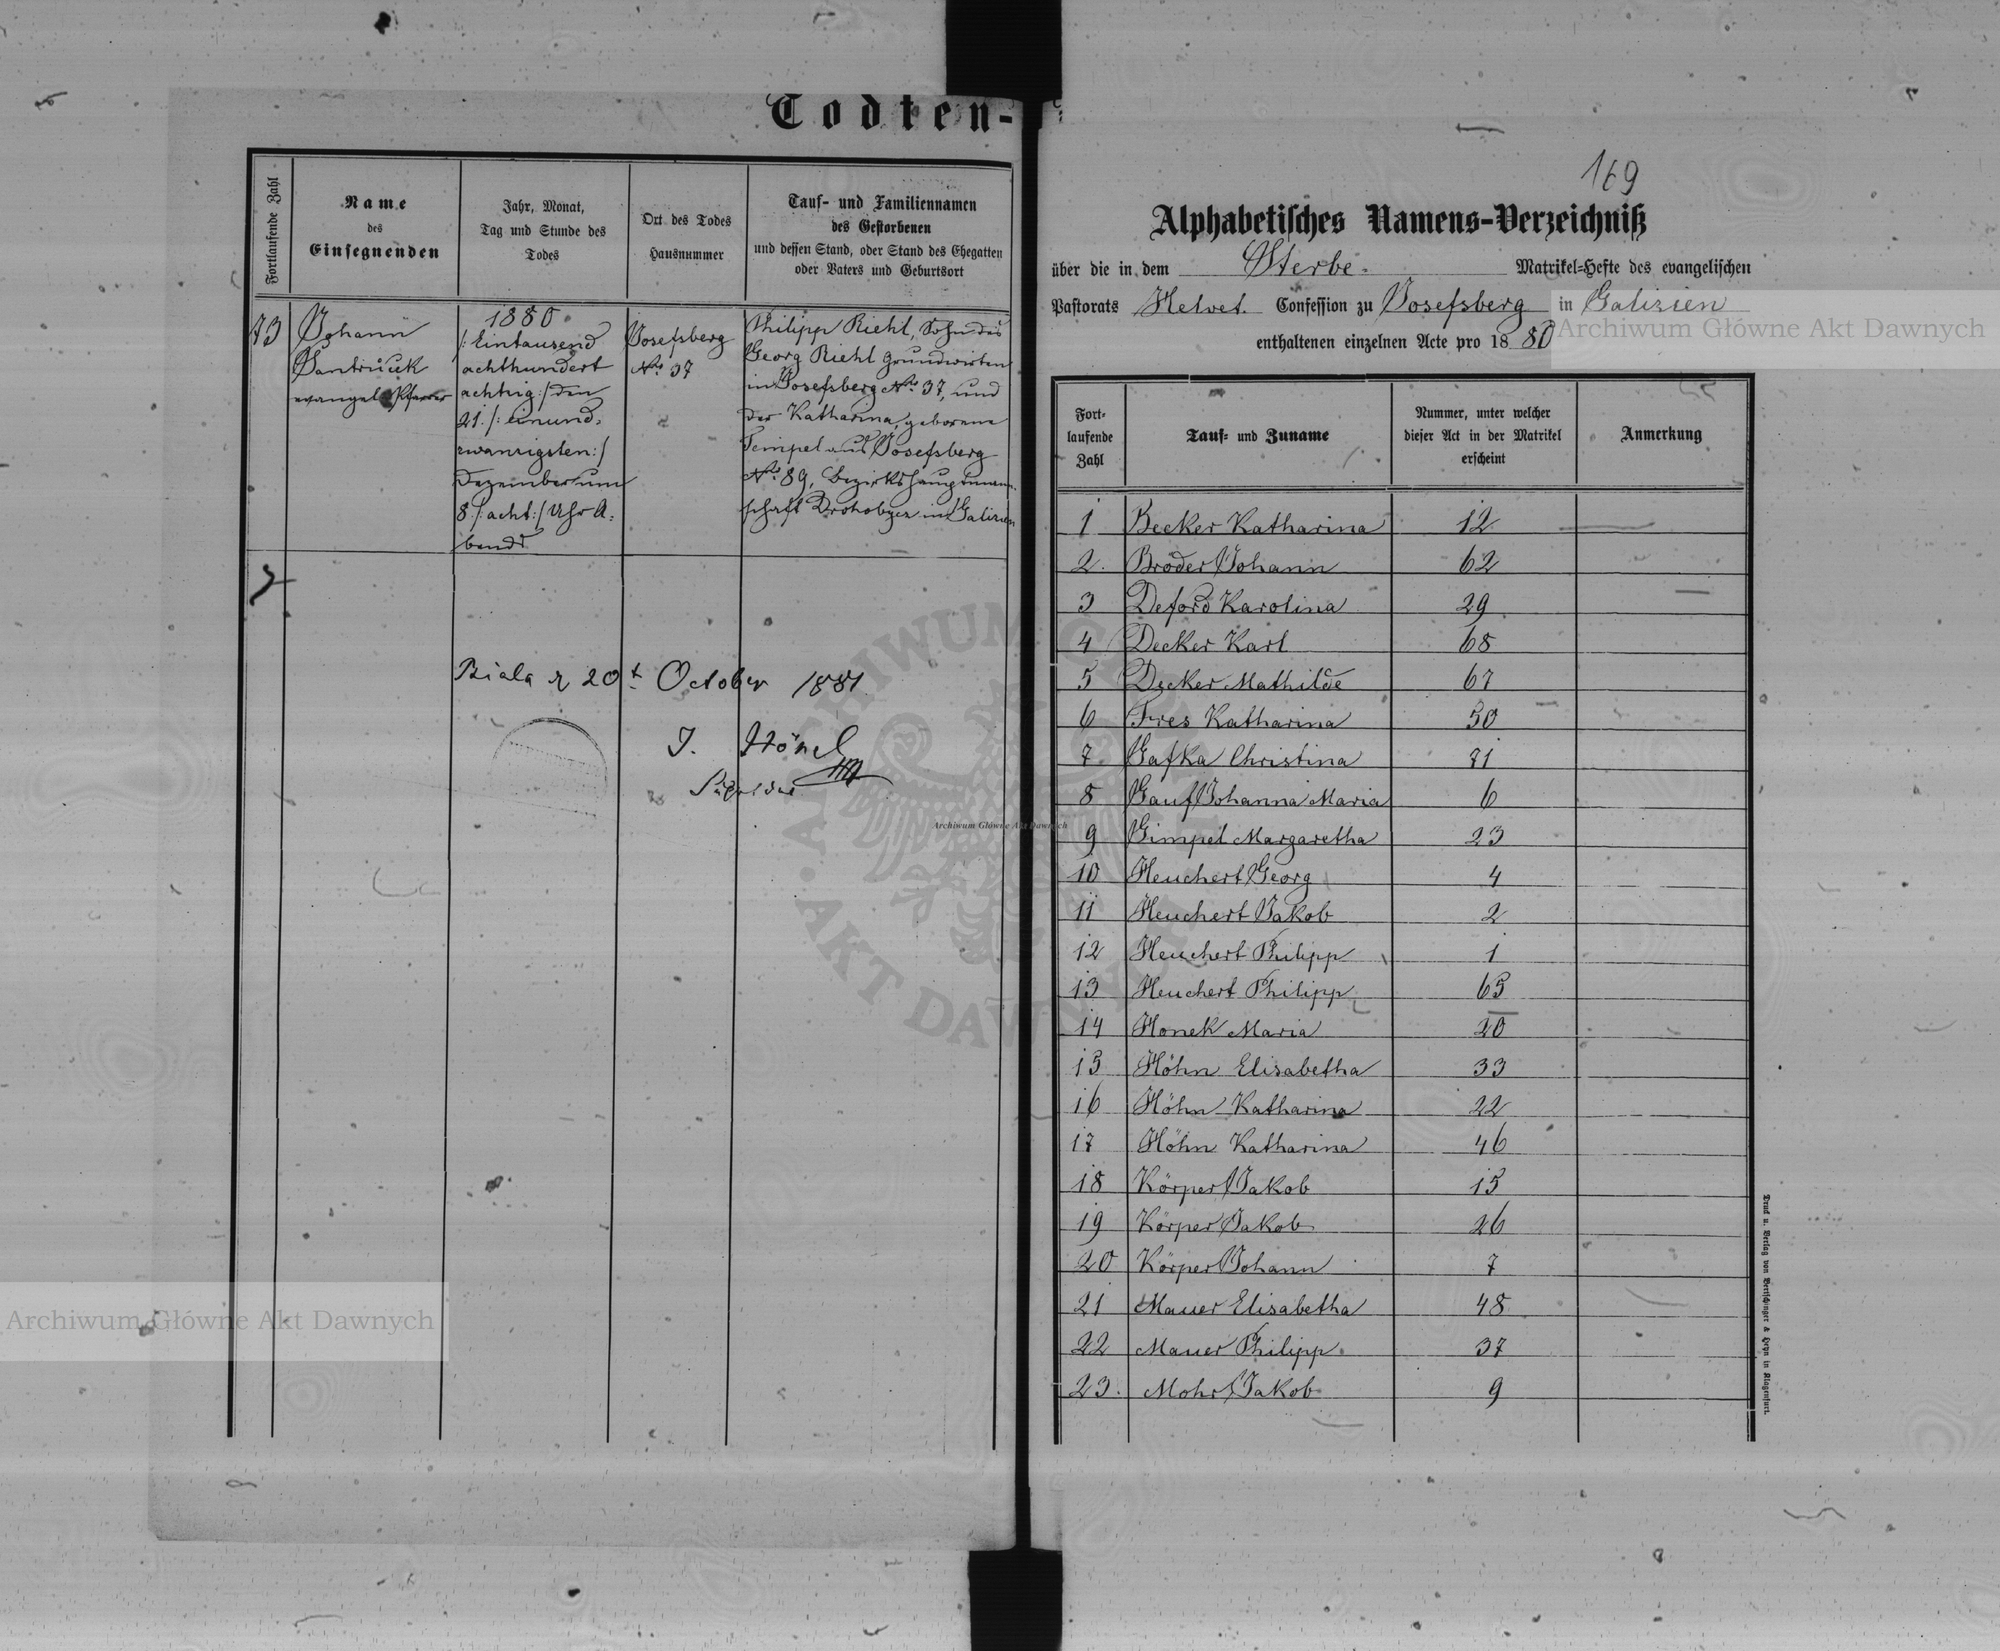 Todten-
Fortlaufende Zahl
Name
des
Einsegnenden
Jahr, Monat,
Tag und Stunde des
Todes
Ort des Todes
Hausnummer
Tauf- und Familiennamen
des Gestorbenen
und dessen Stand, oder Stand des Ehegatten
oder Vaters und Geburtsort
73
Johann
evangel. Pfarrer
1880
/: Eintausend
achthundert
achtzig :/ den
21. /: einund-
zwanzigsten :/
Dezember um
8 /: acht :/ Uhr A-
bends
Josefsberg
No. 37
Philipp Riehl, Sohn des
Georg Riehl Grundwirten
in Josefsberg No. 37, und
der Katharina, geborene
Gimpel aus Josefsberg
No. 89, Bezirkshauptmann-
schaft Drohobycz in Galizien
Biala 20t October 1881
J. Hönel
169
Alphabetisches Namens-Verzeichniß
über die in dem Sterbe- Matrikel-Hefte des evangelischen
Pastorats Helvet. Confession zu Josefsberg in Galizien
enthaltenen einzelnen Acte pro 1880
Fort-
laufende
Zahl
Tauf- und Zuname
Nummer, unter welcher
dieser Act in der Matrikel
erscheint
Anmerkung
1 Becker Katharina 12
2. Broder Johann 62
3 Deford Karolina 29
4 Decker Karl 68
5 Decker Mathilde 67
6 Fres Katharina 50
7. Gafka Christina 71
8 Gauf Johanna Maria 6
9 Gimpel Margaretha 23
10 Heuchert Georg 4
11 Heuchert Jakob 2
12 Heuchert Philipp 1
13 Heuchert Philipp 65
14 Honek Maria 20
15 Höhn Elisabetha 33
16 Höhn Katharina 22
17 Höhn Katharina 46
18 Körper Jakob 15
19 Körper Jakob 26
20 Körper Johann 7
21 Mauer Elisabetha 48
22 Mauer Philipp 37
23. Mohr Jakob 9
Druck u. Verlag von Bertschinger & Heyn in Klagenfurt.
Archiwum Główne Akt Dawnych
Archiwum Główne Akt Dawnych
Archiwum Główne Akt Dawnych